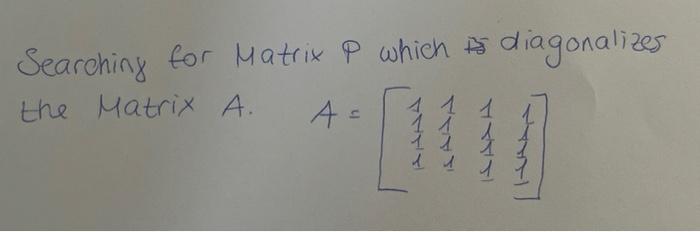 Searching for Matrix P which diagonalizes
the Matrix A. A = [1 1 1 1
1 1 1 1
1 1 1 1
1 1 1 1]